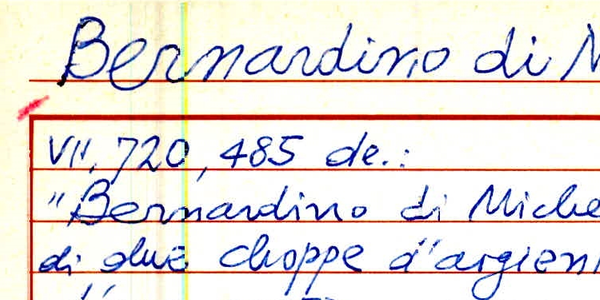 Bernardino di M
VII, 720, 485 de.:
"Bernardino di Miche
di due choppe d'argien